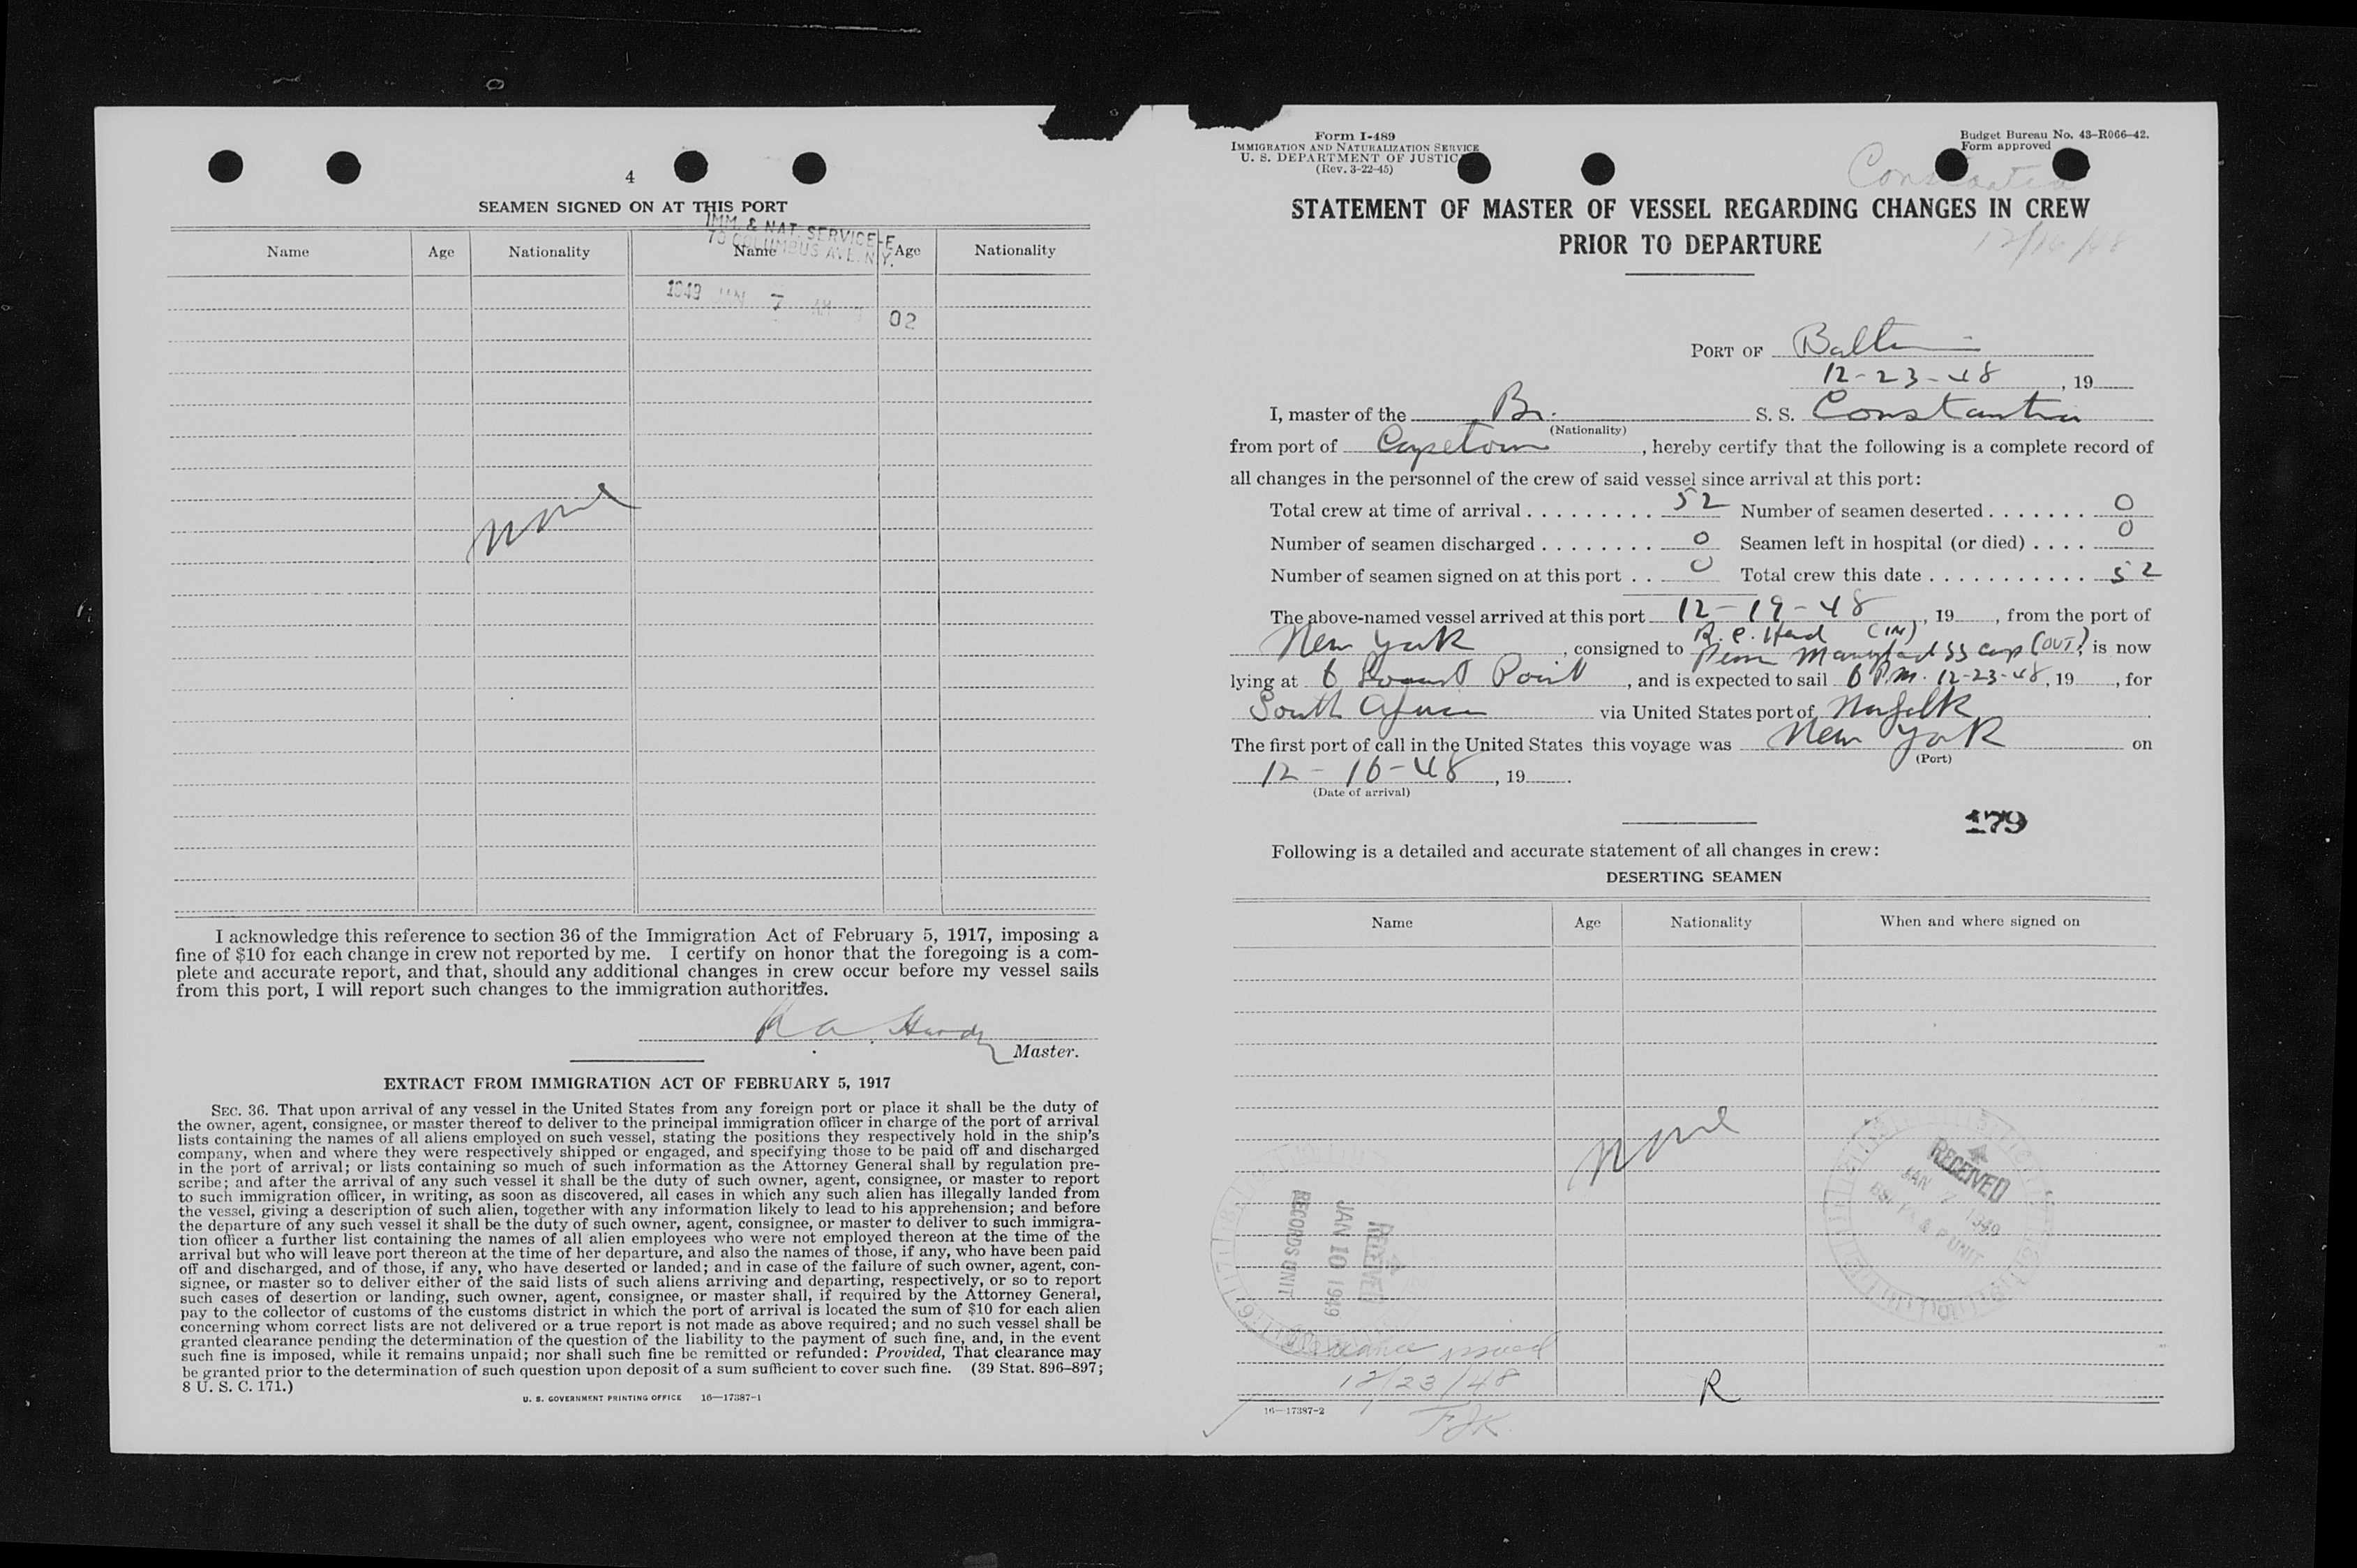 4
SEAMEN SIGNED ON AT THIS PORT
IMM. & NAT. SERVICE-E
70 COLUMBUS AVE. N.Y.
Name Age Nationality Name Age Nationality
1949 JAN 7 AM
02
None
I acknowledge this reference to section 36 of the Immigration Act of February 5, 1917, imposing a
fine of $10 for each change in crew not reported by me. I certify on honor that the foregoing is a com-
plete and accurate report, and that, should any additional changes in crew occur before my vessel sails
from this port, I will report such changes to the immigration authorities.
R A Hardy
Master.
EXTRACT FROM IMMIGRATION ACT OF FEBRUARY 5, 1917
SEC. 36. That upon arrival of any vessel in the United States from any foreign port or place it shall be the duty of
the owner, agent, consignee, or master thereof to deliver to the principal immigration officer in charge of the port of arrival
lists containing the names of all aliens employed on such vessel, stating the positions they respectively hold in the ship's
company, when and where they were respectively shipped or engaged, and specifying those to be paid off and discharged
in the port of arrival; or lists containing so much of such information as the Attorney General shall by regulation pre-
scribe; and after the arrival of any such vessel it shall be the duty of such owner, agent, consignee, or master to report
to such immigration officer, in writing, as soon as discovered, all cases in which any such alien has illegally landed from
the vessel, giving a description of such alien, together with any information likely to lead to his apprehension; and before
the departure of any such vessel it shall be the duty of such owner, agent, consignee, or master to deliver to such immigra-
tion officer a further list containing the names of all alien employees who were not employed thereon at the time of the
arrival but who will leave port thereon at the time of her departure, and also the names of those, if any, who have been paid
off and discharged, and of those, if any, who have deserted or landed; and in case of the failure of such owner, agent, con-
signee, or master so to deliver either of the said lists of such aliens arriving and departing, respectively, or so to report
such cases of desertion or landing, such owner, agent, consignee, or master shall, if required by the Attorney General,
pay to the collector of customs of the customs district in which the port of arrival is located the sum of $10 for each alien
concerning whom correct lists are not delivered or a true report is not made as above required; and no such vessel shall be
granted clearance pending the determination of the question of the liability to the payment of such fine, and, in the event
such fine is imposed, while it remains unpaid; nor shall such fine be remitted or refunded: Provided, That clearance may
be granted prior to the determination of such question upon deposit of a sum sufficient to cover such fine. (39 Stat. 896–897;
8 U. S. C. 171.)
U. S. GOVERNMENT PRINTING OFFICE 16—17387-1
Form I-489
IMMIGRATION AND NATURALIZATION SERVICE
U. S. DEPARTMENT OF JUSTICE
(Rev. 3-22-45)
Budget Bureau No. 43-R066-42.
Form approved
Constantia
STATEMENT OF MASTER OF VESSEL REGARDING CHANGES IN CREW
PRIOR TO DEPARTURE
12/16/48
PORT OF Balto
12-23-48, 19
I, master of the Br. S. S. Constantia
(Nationality)
from port of Capetown, hereby certify that the following is a complete record of
all changes in the personnel of the crew of said vessel since arrival at this port:
Total crew at time of arrival . . . . . . . . . 52 Number of seamen deserted . . . . . . . 0
Number of seamen discharged . . . . . . . . 0 Seamen left in hospital (or died) . . . . 0
Number of seamen signed on at this port . . 0 Total crew this date . . . . . . . . . . . . 52
The above-named vessel arrived at this port 12-19-48, 19, from the port of
R. C. Herd (IN)
New York, consigned to Penn Maryland SS Corp (OUT), is now
lying at 6 Locust Point, and is expected to sail 6 P.M. 12-23-48, 19, for
South Africa via United States port of Norfolk.
The first port of call in the United States this voyage was New York on
(Port)
12-16-48, 19.
(Date of arrival)
179
Following is a detailed and accurate statement of all changes in crew:
DESERTING SEAMEN
Name Age Nationality When and where signed on
None
RECEIVED
JAN 7 1949
RECEIVED
JAN 10 1949
RECORDS UNIT
Clearance issued
12/23/48
R
16—17387-2
FJK